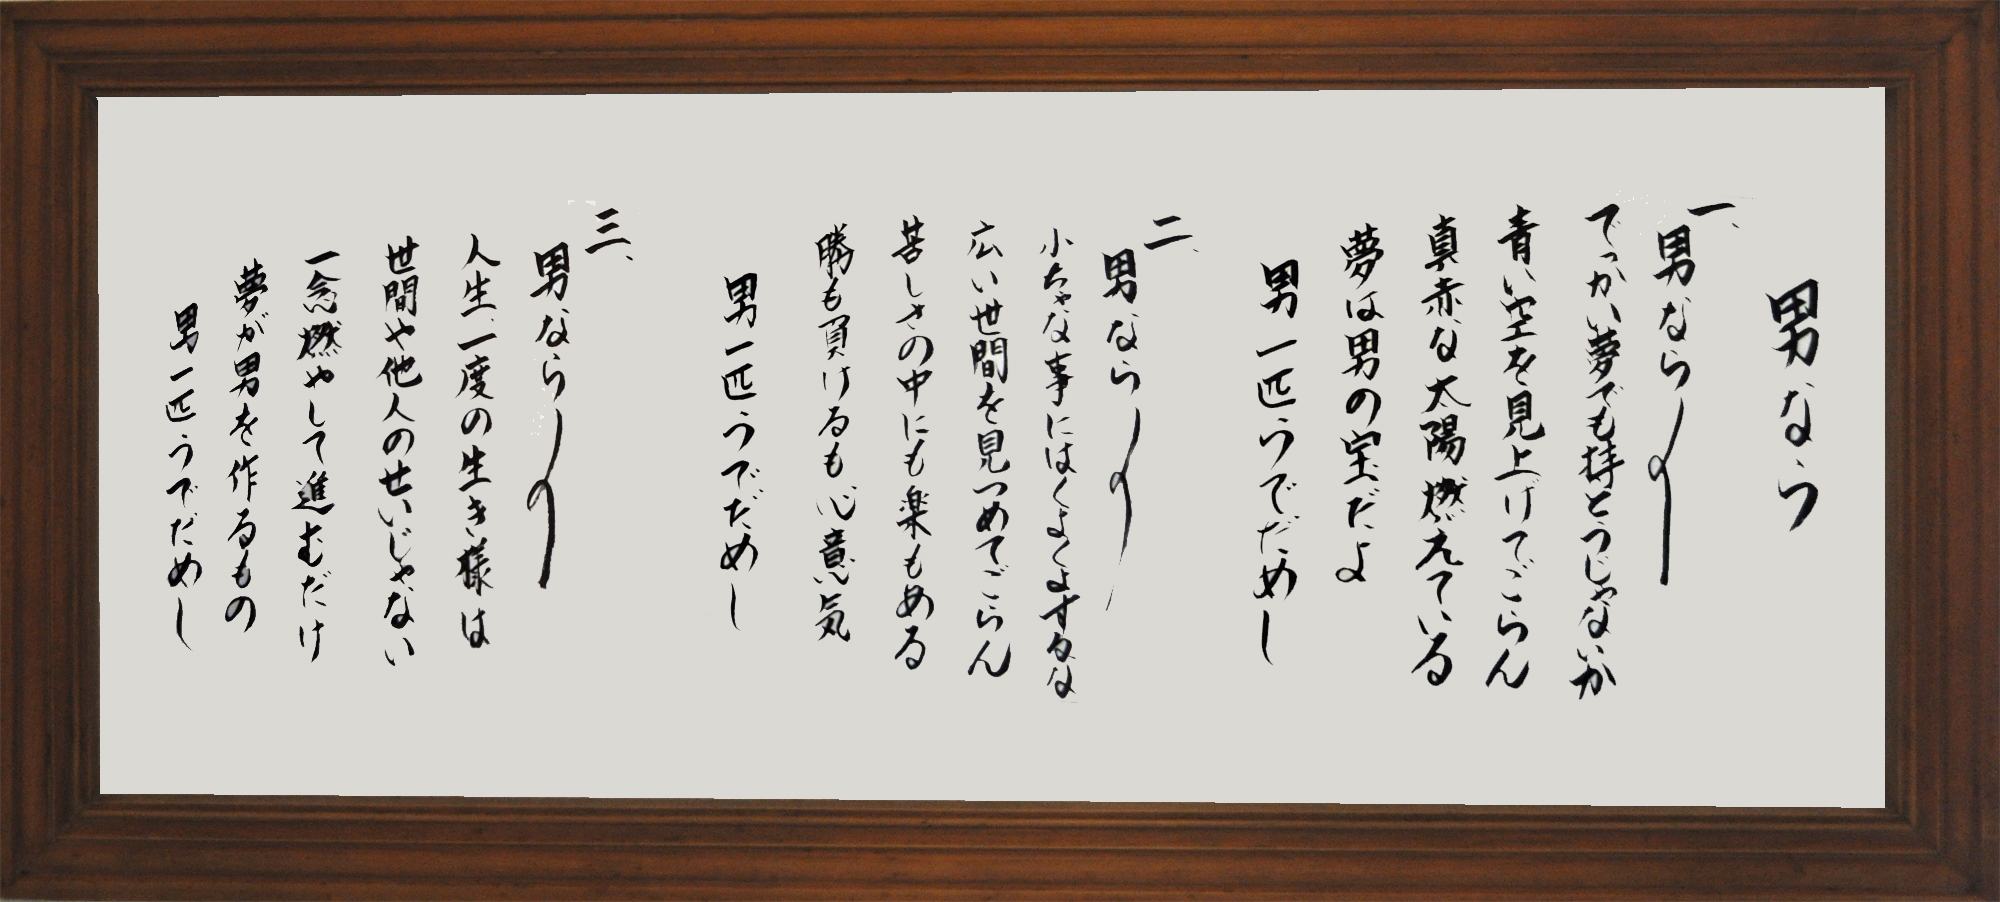 男なら
一、
男なら〜
でっかい夢でも持とうじゃないか
青い空を見上げてごらん
真赤な太陽燃えている
夢は男の宝だよ
男一匹うでだめし
二、
男なら〜
小ちゃな事にはくよくよするな
広い世間を見つめてごらん
苦しさの中にも楽もある
勝も負けるも心意気
男一匹うでだめし
三、
男なら〜
人生一度の生き様は
世間や他人のせいじゃない
一念燃やして進むだけ
夢が男を作るもの
男一匹うでだめし